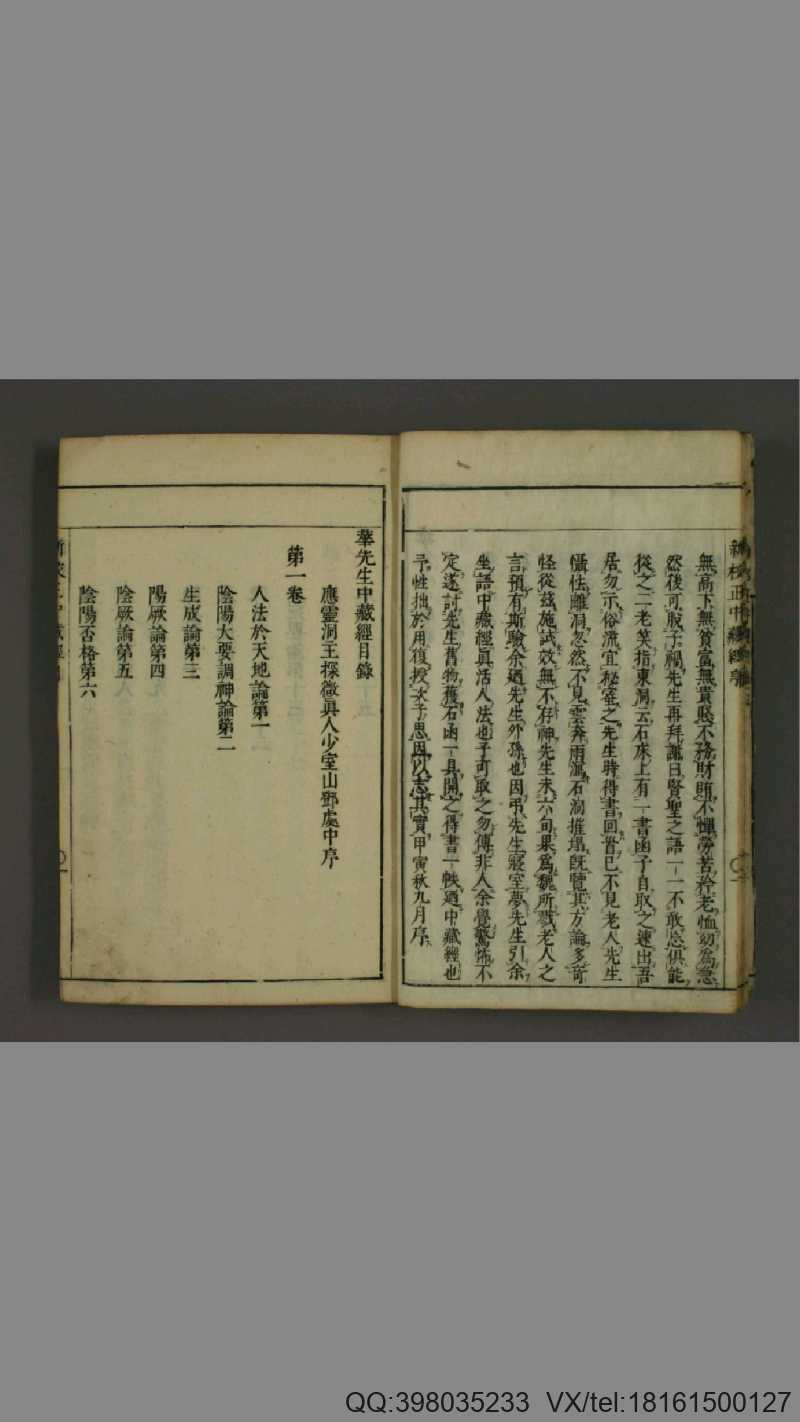 無高下無貧富無貴賤不務財賄不憚勞苦矜老恤幼爲急
然後可脫子禍先生再拜謝曰賢聖之語一一不敢忘俱能
從之二老笑指東洞云石床上有一書函子自取之速出吾
居勿示俗流宜秘密之先生時得書回首已不見老人先生
懾怯離洞忽然不見雲奔雨瀉石洞摧塌既覽其方論多奇
怪從茲施試效無不存神先生未六旬果爲魏所戮老人之
言預有斯驗余廼先生外孫也因弔先生寢室夢先生引余
坐語中藏經真活人法也子可取之勿傳非人余覺驚怖不
定遂討先生舊物獲石函一具開之得書一帙廼中藏經也
予性拙於用復授次子思因以志其實甲寅秋九月序
華先生中藏經目錄
應靈洞主探微真人少室山鄧處中序
第一卷
人法於天地論第一
陰陽大要調神論第二
生成論第三
陽厥論第四
陰厥論第五
陰陽否格第六
QQ:398035233 VX/tel:18161500127